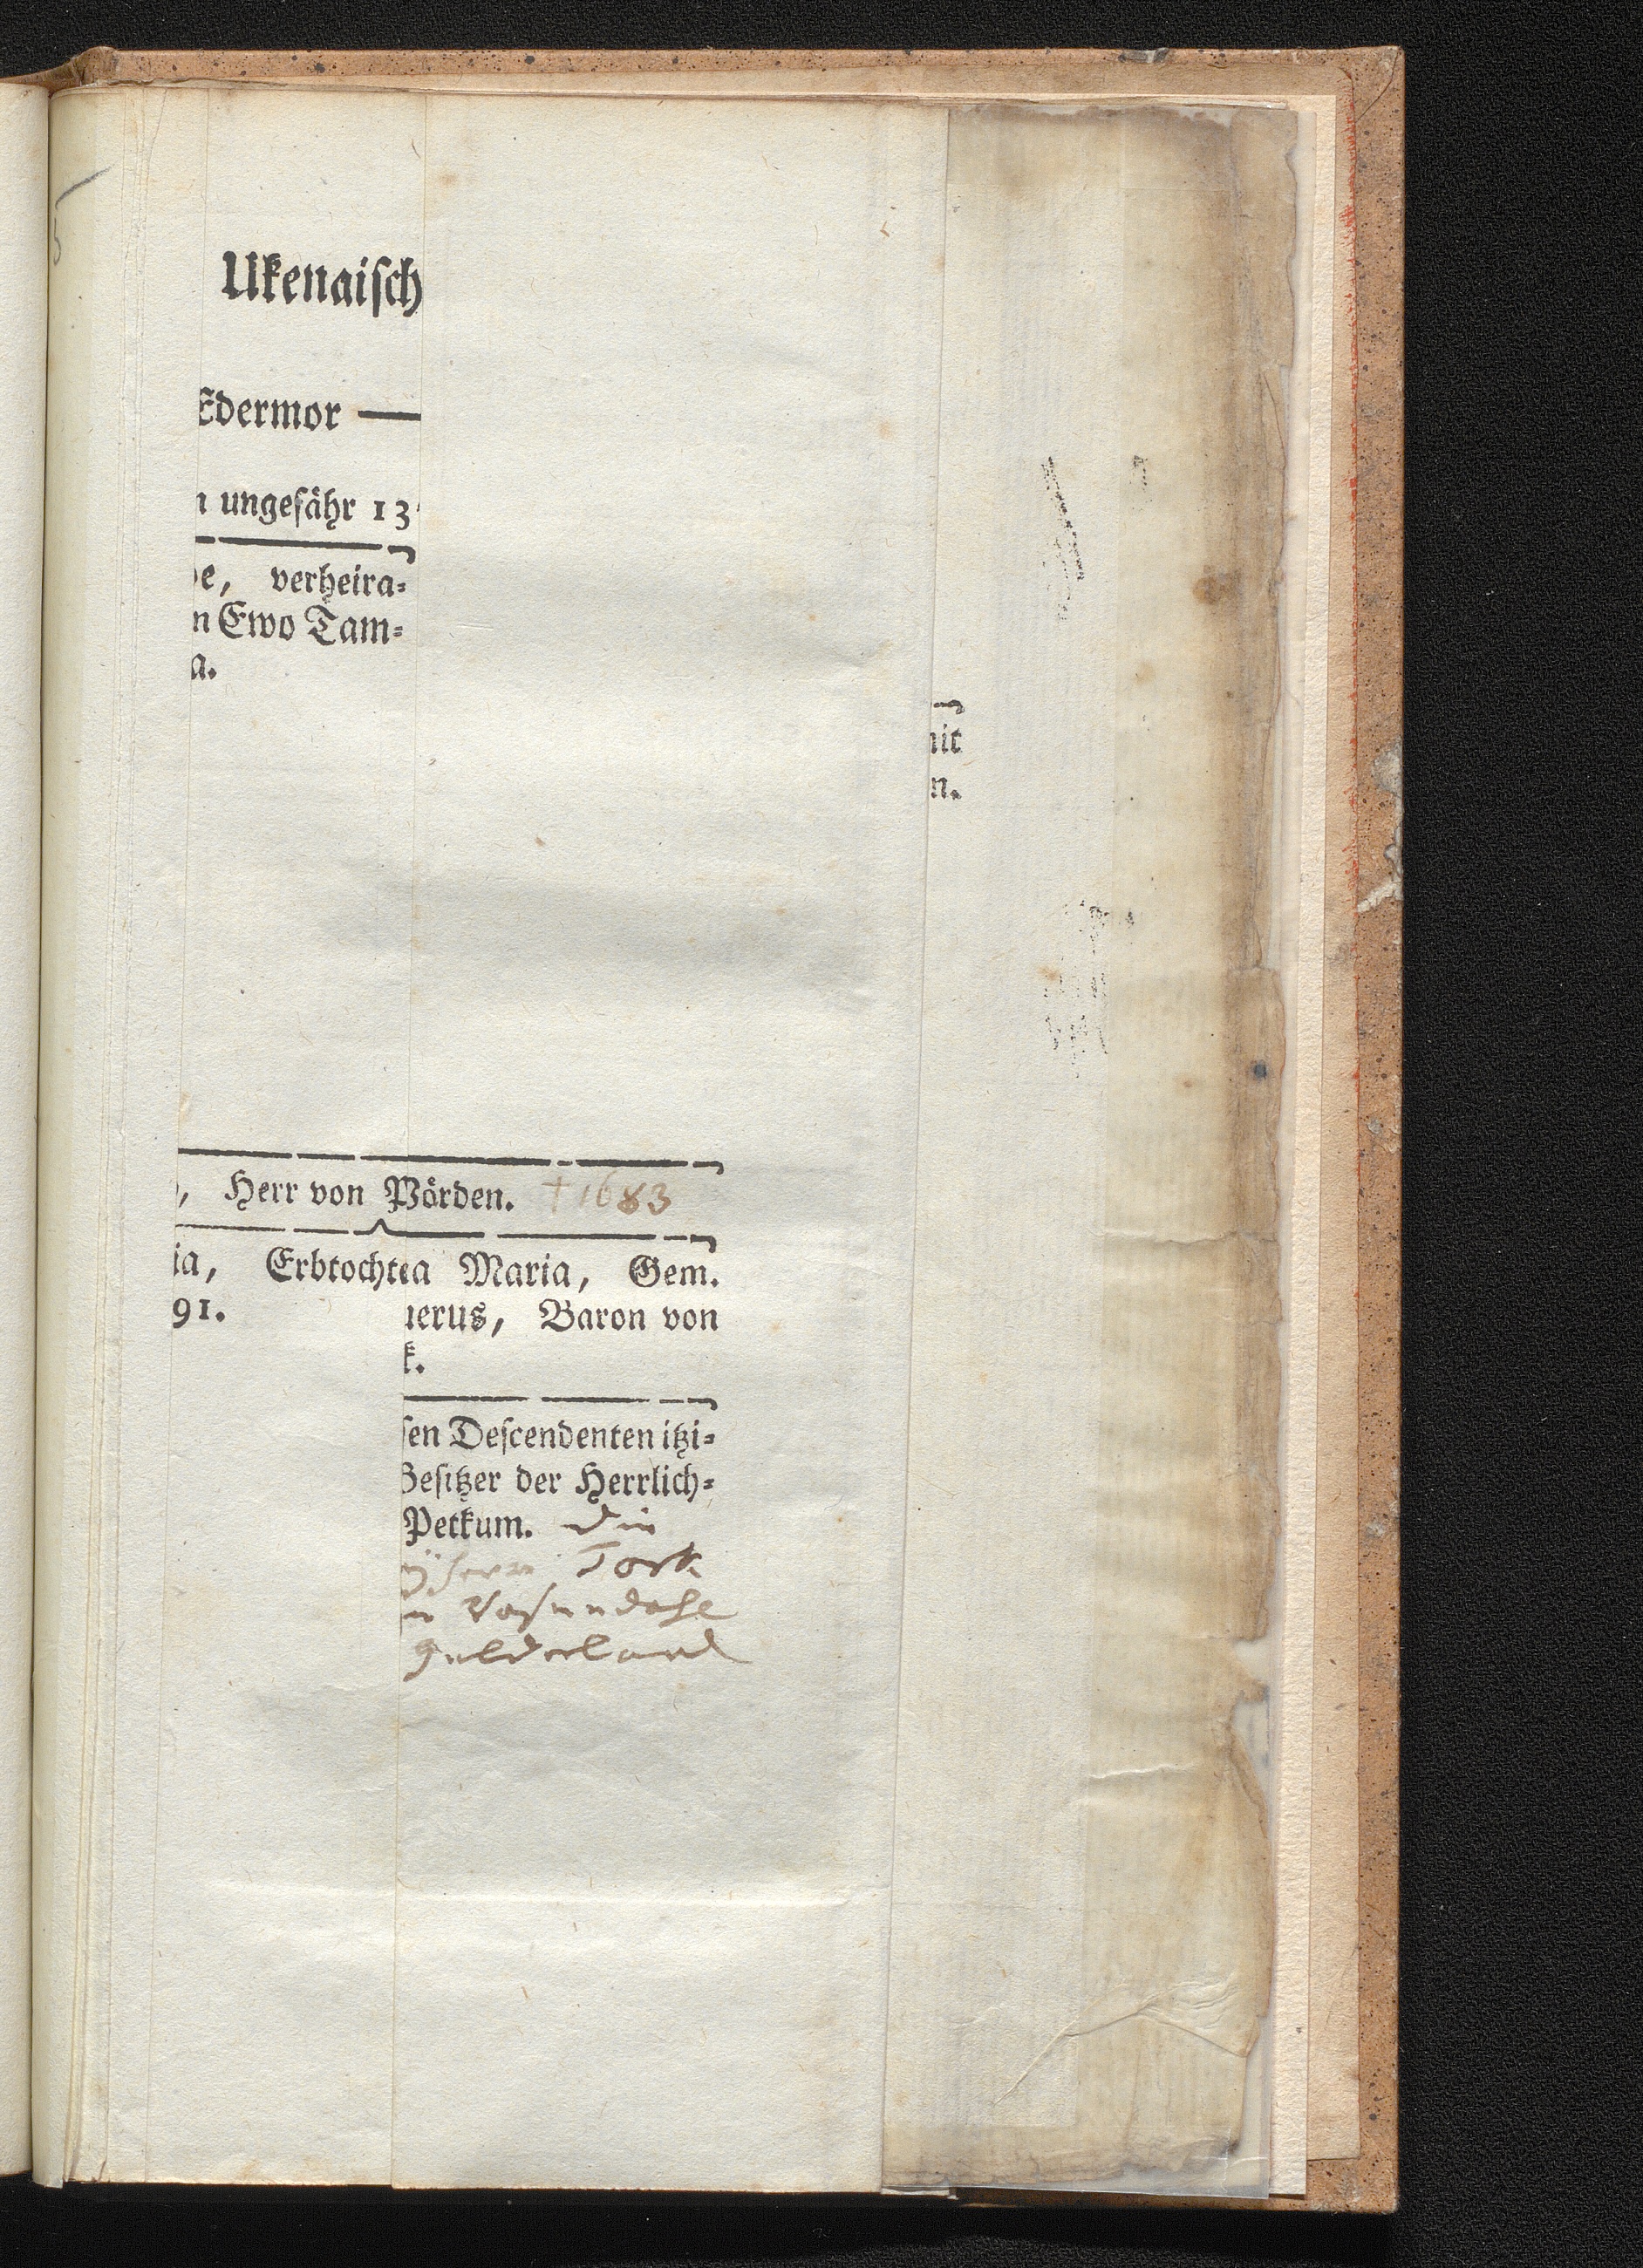 Ukenaisch
Edermor —
n ungefähr 13
be, verheira=
n Ewo Tam=
a.
nit
n.
, Herr von Pörden. † 1683
ia, Erbtochte a Maria, Gem.
91. nerus, Baron von
k.
sen Descendenten itzi=
Besitzer der Herrlich=
Petkum. die
Herrn Tork
Gelderland